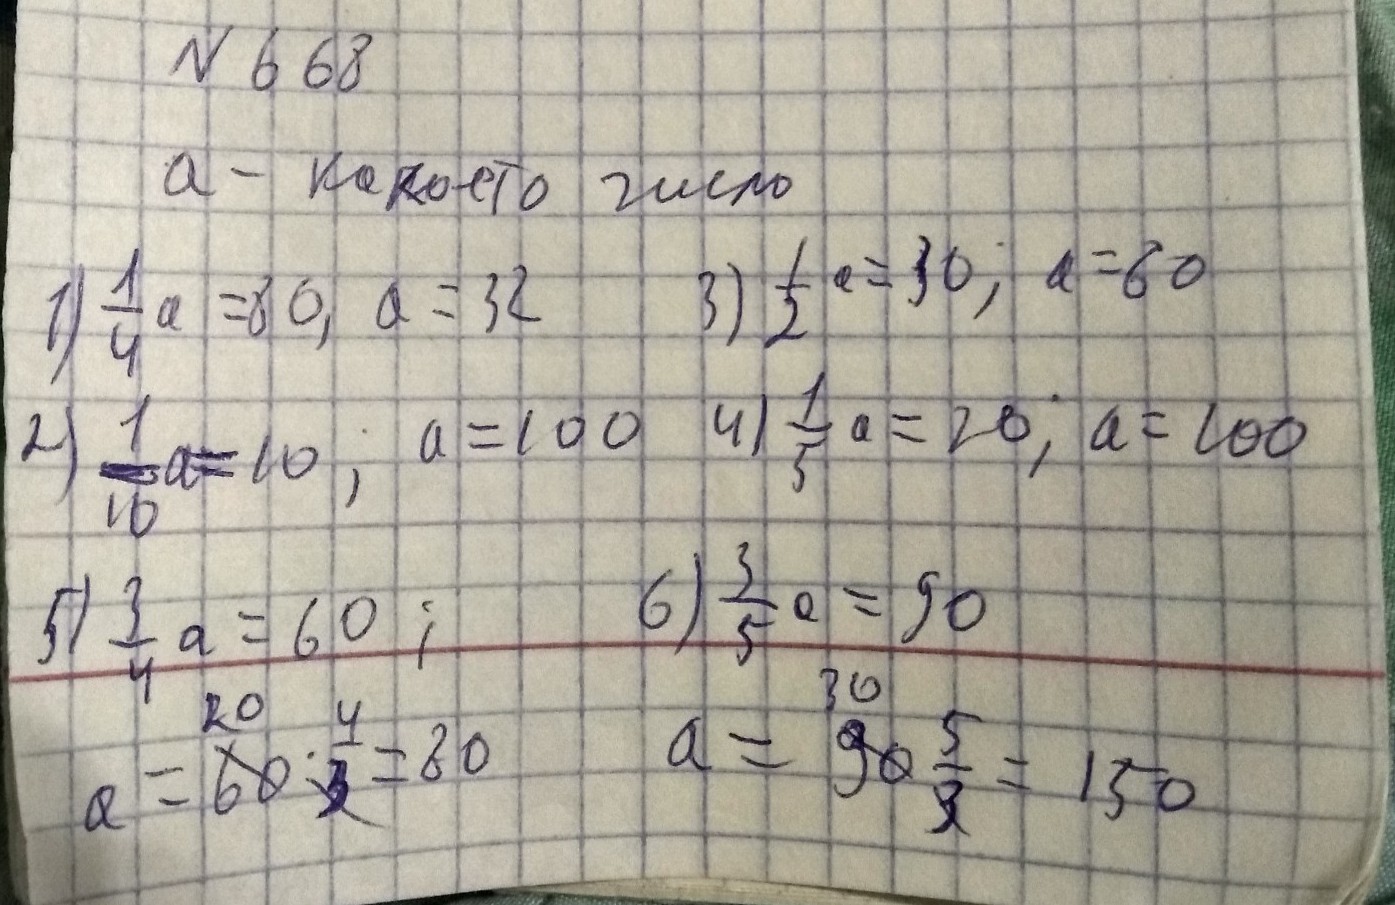 N 668
a - какое-то число
1) 1/4 a = 80, a = 32
3) 1/2 a = 30; a = 60
2) 1/10 a = 10; a = 100
4) 1/5 a = 20; a = 100
5) 3/4 a = 60;
6) 3/5 a = 90
20
a = 60 · 4/3 = 80
30
a = 90 5/3 = 150